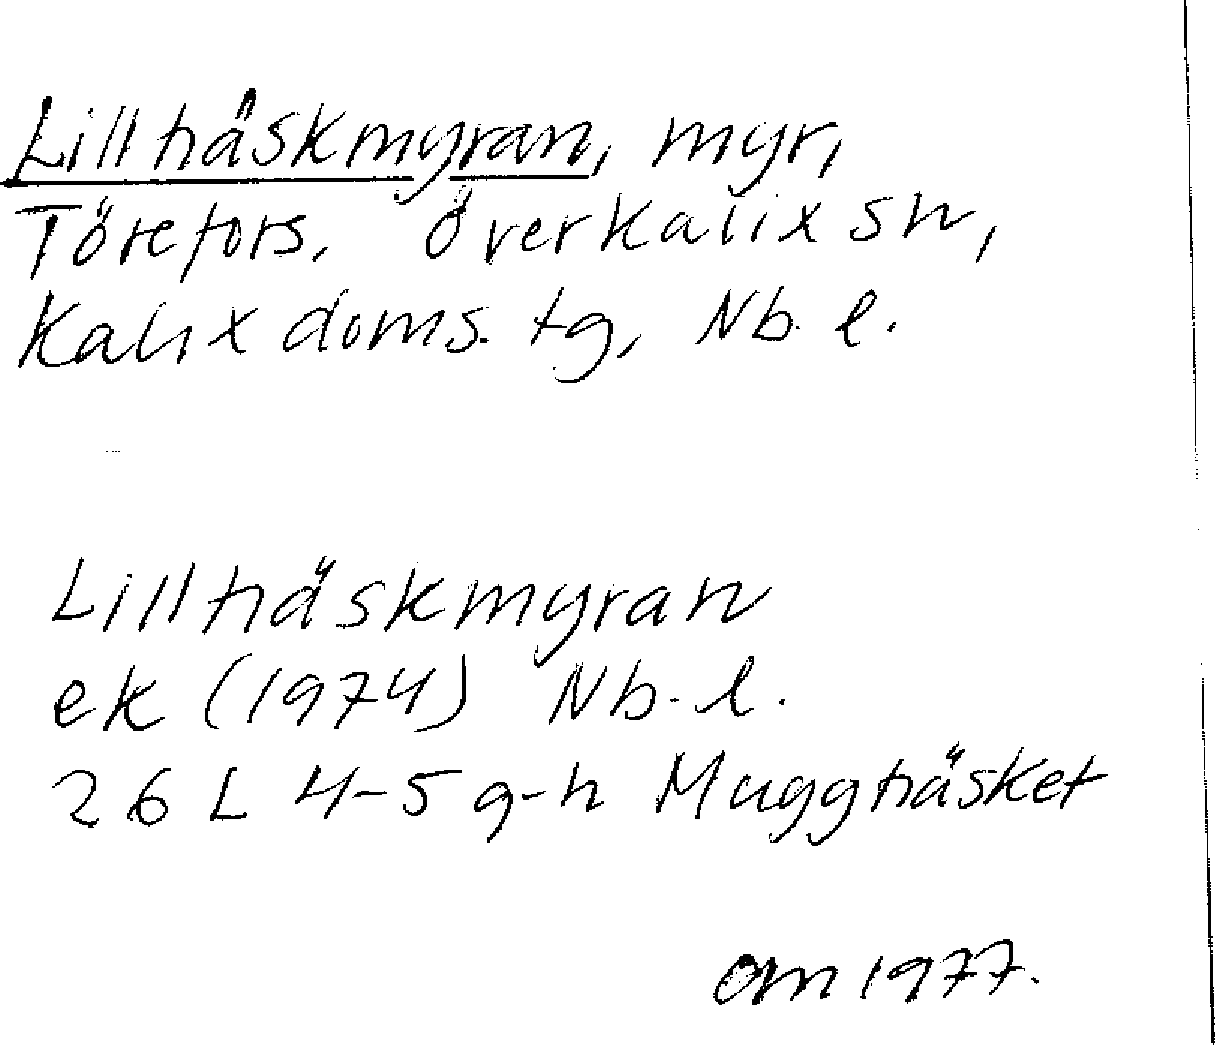 Lillträskmyran, myr,
Törefors. Överkalix sn,
Kalix doms. tg, Nb. l.
Lillträskmyran
ek (1974) Nb. l.
26 L 4-5 g-h Muggträsket
om 1977.